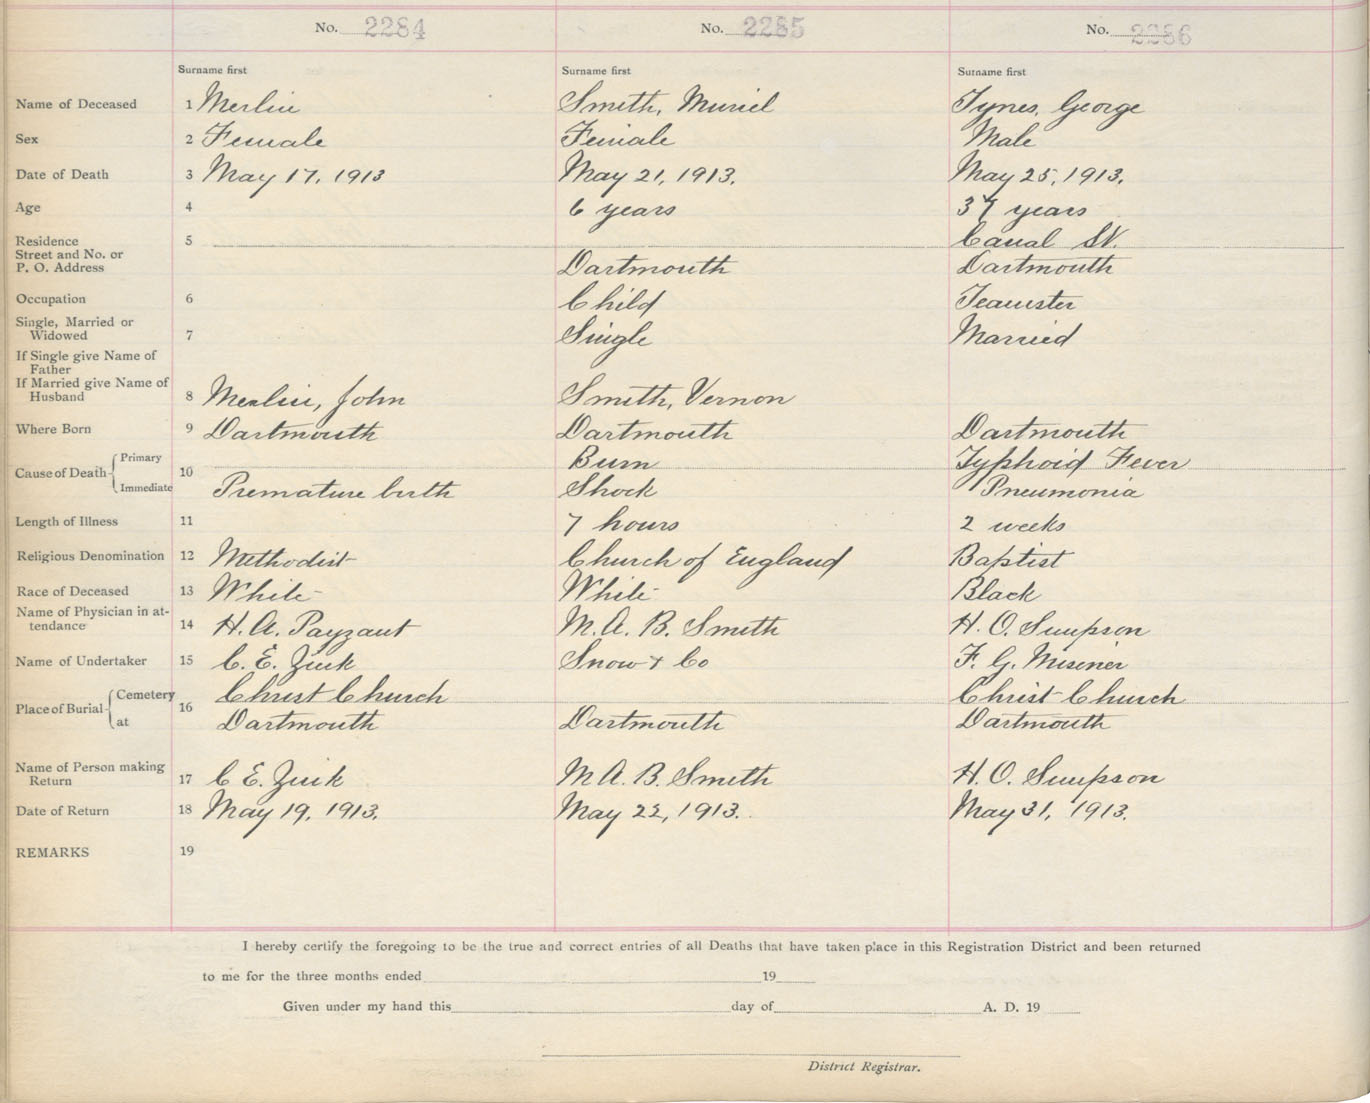 No. 2284 No. 2285 No. 2286
Surname first Surname first Surname first
Name of Deceased 1 Merlin Smith, Muriel Tynes, George
Sex 2 Female Female Male
Date of Death 3 May 17, 1913 May 21, 1913. May 25, 1913.
Age 4 6 years 37 years
Residence 5 Canal St.
Street and No. or
P. O. Address Dartmouth Dartmouth
Occupation 6 Child Teamster
Single, Married or
Widowed 7 Single Married
If Single give Name of
Father
If Married give Name of
Husband 8 Merlin, John Smith, Vernon
Where Born 9 Dartmouth Dartmouth Dartmouth
Primary Burn Typhoid Fever
Cause of Death 10
Immediate Premature birth Shock Pneumonia
Length of Illness 11 7 hours 2 weeks
Religious Denomination 12 Methodist Church of England Baptist
Race of Deceased 13 White White Black
Name of Physician in at-
tendance 14 H. A. Payzant M. A. B. Smith H. O. Simpson
Name of Undertaker 15 C. E. Zink Snow + Co F. G. Misener
Cemetery Christ Church Christ Church
Place of Burial 16
at Dartmouth Dartmouth Dartmouth
Name of Person making
Return 17 C E. Zink M A. B. Smith H. O. Simpson
Date of Return 18 May 19, 1913. May 22, 1913. May 31, 1913.
REMARKS 19
I hereby certify the foregoing to be the true and correct entries of all Deaths that have taken place in this Registration District and been returned
to me for the three months ended 19
Given under my hand this day of A. D. 19
District Registrar.